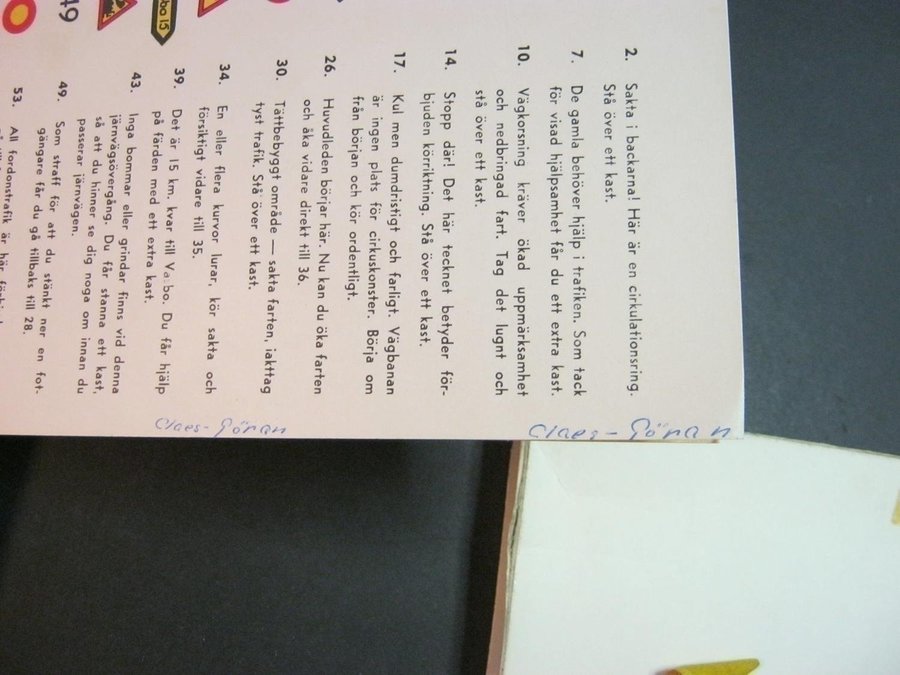 2. Sakta i backarna! Här är en cirkulationsring.
Stå över ett kast.
7. De gamla behöver hjälp i trafiken. Som tack
för visad hjälpsamhet får du ett extra kast.
10. Vägkorsning kräver ökad uppmärksamhet
och nedbringad fart. Tag det lugnt och
stå över ett kast.
14. Stopp där! Det här tecknet betyder för-
bjuden körriktning. Stå över ett kast.
17. Kul men dumdristigt och farligt. Vägbanan
är ingen plats för cirkuskonster. Börja om
från början och kör ordentligt.
26. Huvudleden börjar här. Nu kan du öka farten
och åka vidare direkt till 36.
30. Tättbebyggt område — sakta farten, iakttag
tyst trafik. Stå över ett kast.
34. En eller flera kurvor lurar, kör sakta och
försiktigt vidare till 35.
39. Det är 15 km. kvar till bo. Du får hjälp
på färden med ett extra kast.
43. Inga bommar eller grindar finns vid denna
järnvägsövergång. Du får stanna ett kast,
så att du hinner se dig noga om innan du
passerar järnvägen.
49. Som straff för att du stänkt ner en fot-
gängare får du gå tillbaks till 28.
53. All fordonstrafik är här
bo 15
49
Claes-Göran
Claes-Göran